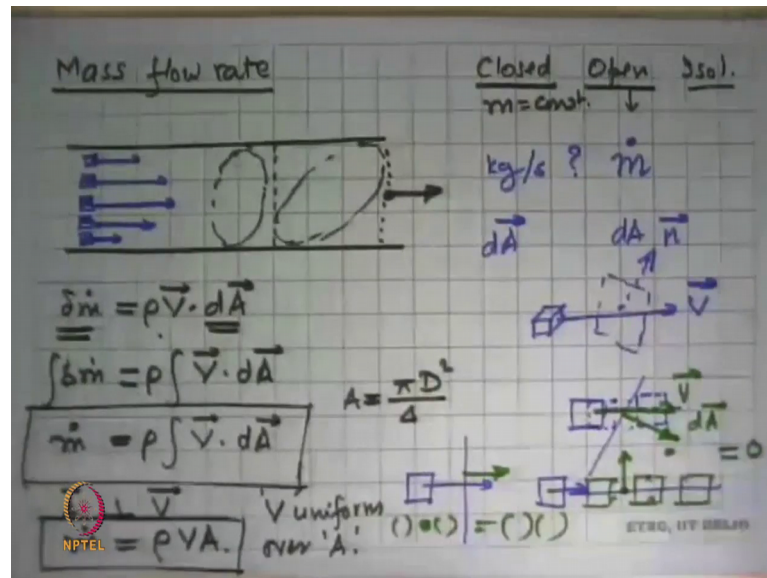 Mass flow rate
Closed Open Isol.
m = const. ↓
kg/s ? ṁ
dA⃗ dA n⃗
V⃗
δṁ = ρV⃗·dA⃗
∫δṁ = ρ∫V⃗·dA⃗
A = πD²/4
ṁ = ρ∫V⃗·dA⃗
V⃗
dA⃗
= 0
V⃗ 'V uniform
= ρVA. over 'A'.
( )•( ) = ( )( )
NPTEL
ETSC, IIT DELHI